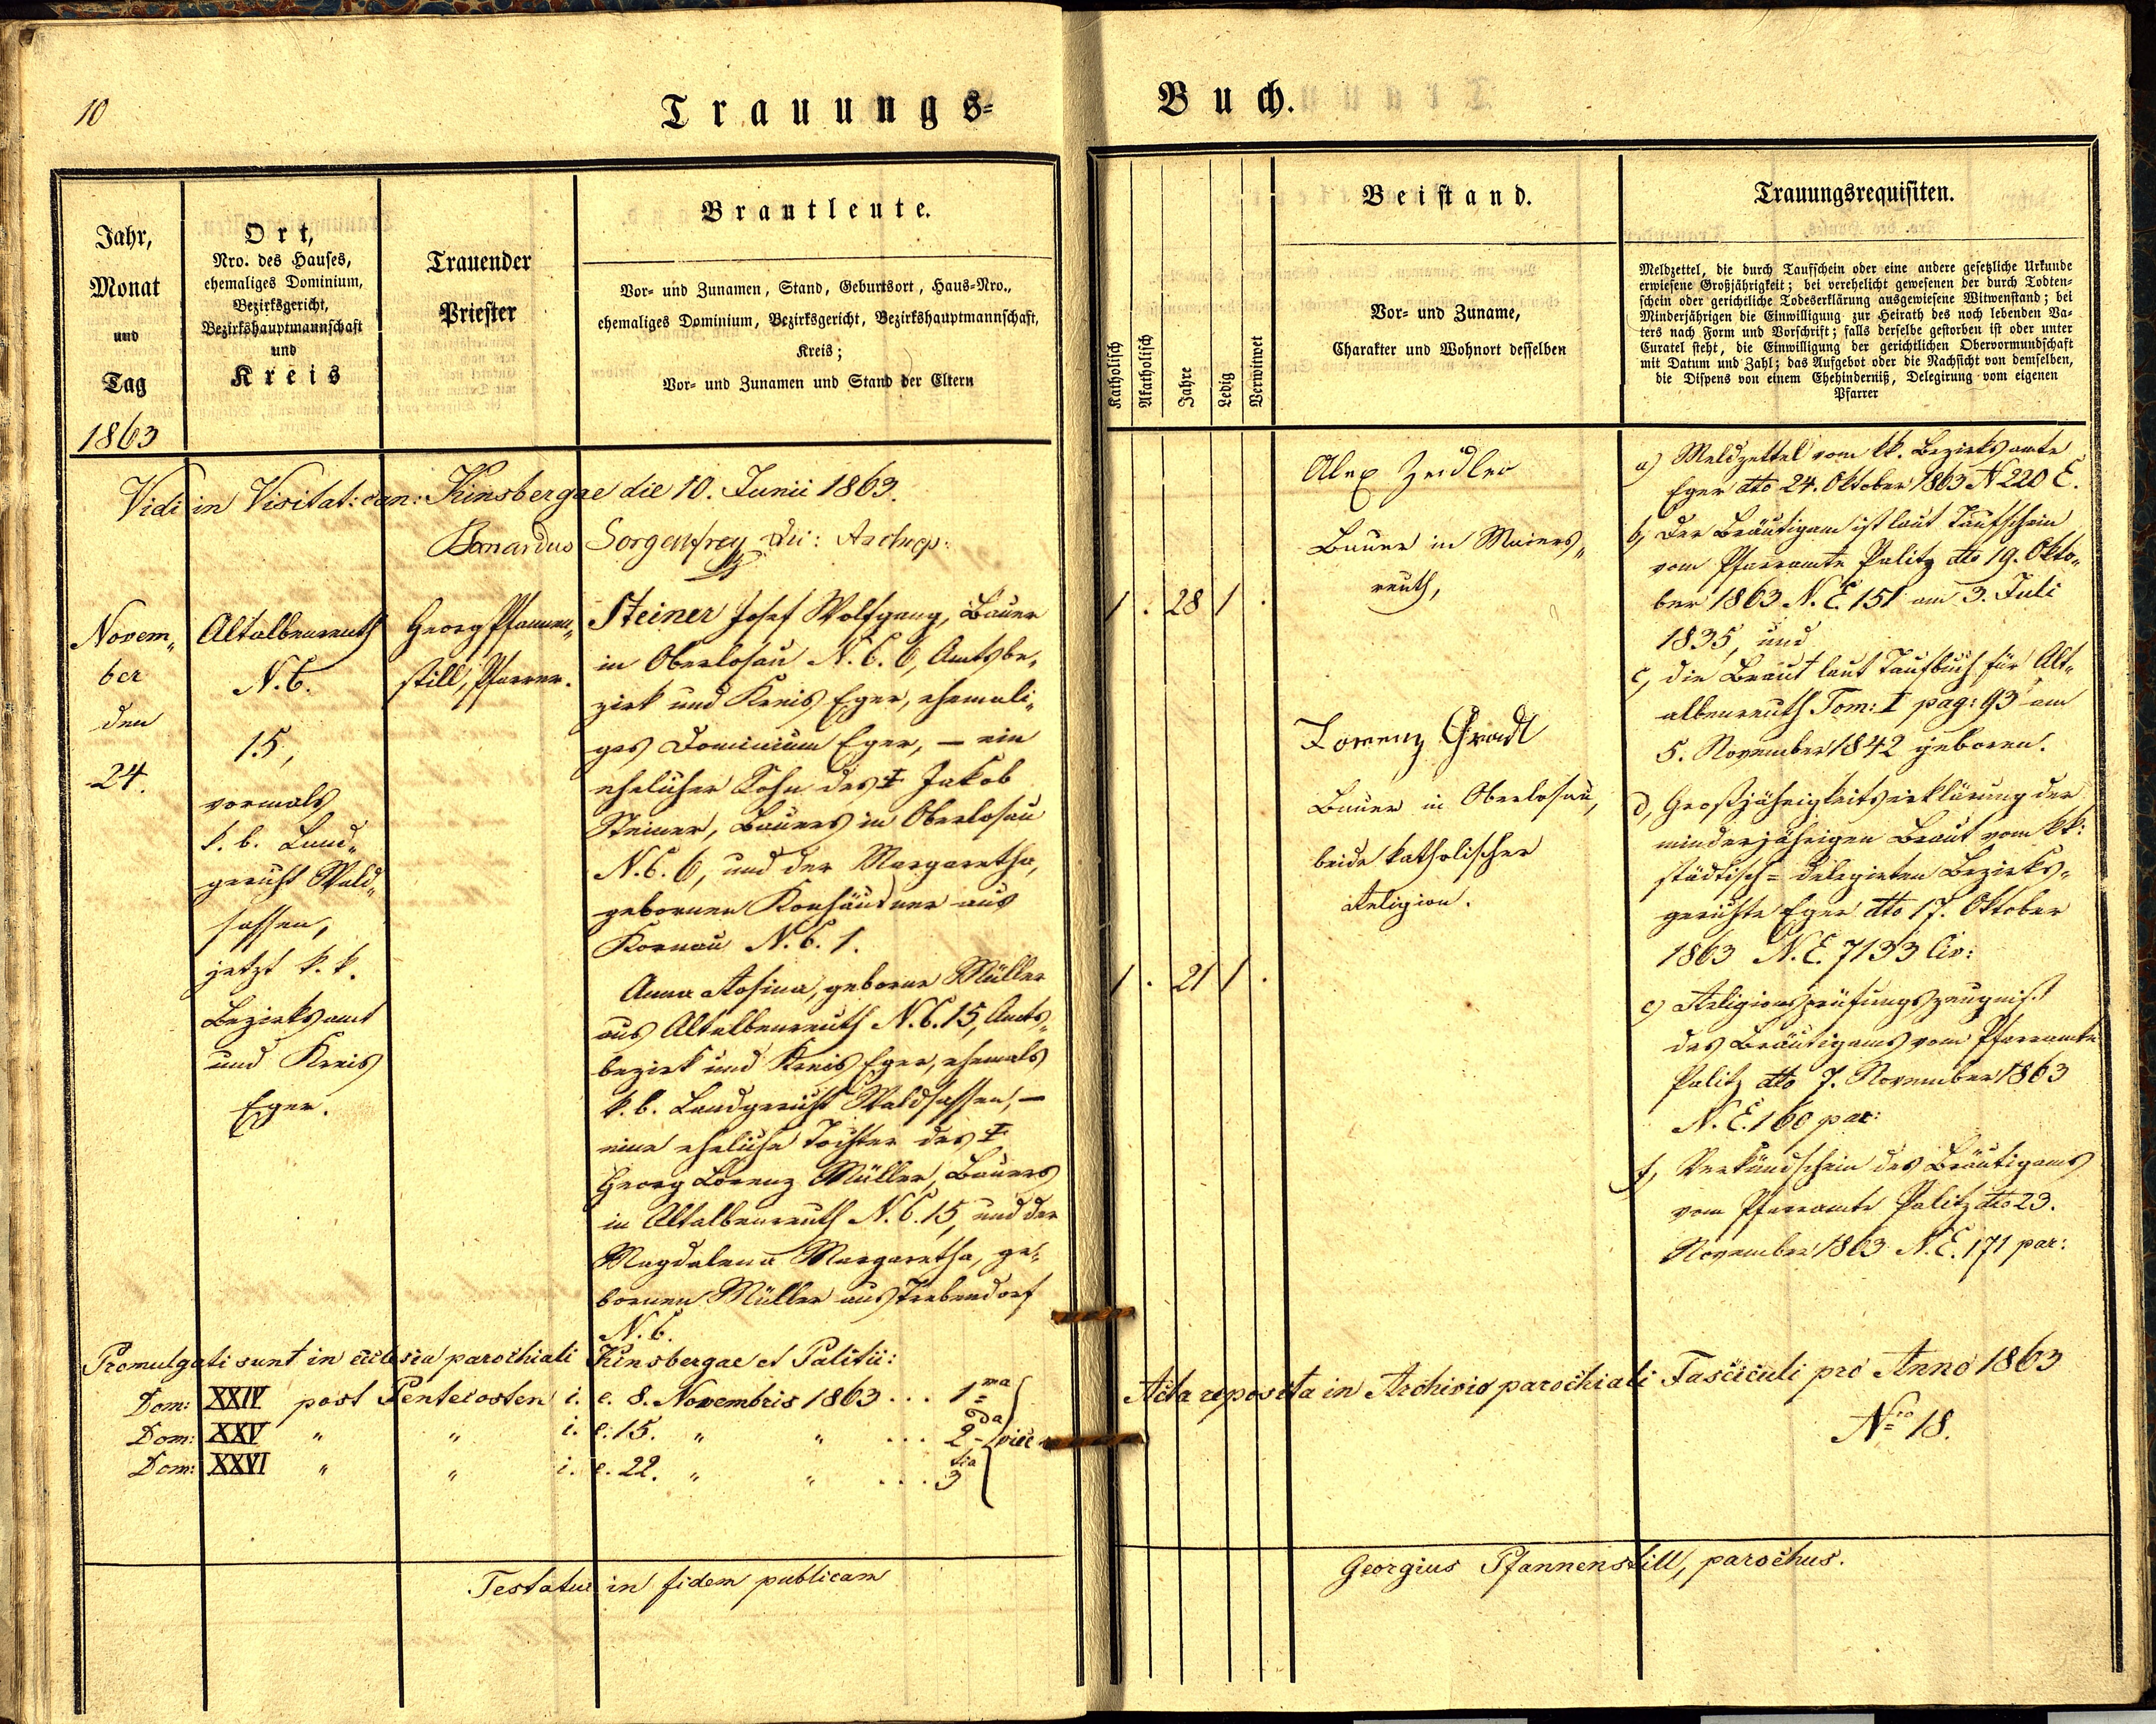 10
Trauungs-
Buch.
Jahr,
Monat
und
Tag
1863
Ort,
Nro. des Hauses,
ehemaliges Dominium,
Bezirksgericht,
Bezirkshauptmannschaft
und
Kreis
Trauender
Priester
Brautleute.
Vor- und Zunamen, Stand, Geburtsort, Haus-Nro.,
ehemaliges Dominium, Bezirksgericht, Bezirkshauptmannschaft,
Kreis;
Vor- und Zunamen und Stand der Eltern
Katholisch
Akatholisch
Jahre
Ledig
Verwitwet
Beistand.
Vor- und Zuname,
Charakter und Wohnort desselben
Trauungsrequisiten.
Meldzettel, die durch Taufschein oder eine andere gesetzliche Urkunde
erwiesene Großjährigkeit; bei verehelicht gewesenen der durch Todten-
schein oder gerichtliche Todeserklärung ausgewiesene Witwenstand; bei
Minderjährigen die Einwilligung zur Heirath des noch lebenden Va-
ters nach Form und Vorschrift; falls derselbe gestorben ist oder unter
Curatel steht, die Einwilligung der gerichtlichen Obervormundschaft
mit Datum und Zahl; das Aufgebot oder die Nachsicht von demselben,
die Dispens von einem Ehehinderniß, Delegirung vom eigenen
Pfarrer
Vidi in Visitat: can: Kinsbergae die 10. Junii 1863.
Bernardus Sorgenfrey
Novem„
ber
den
24.
Altalbenreuth
N. C.
15,
vormals
k. b. Land„
gericht Wald„
sassen,
jetzt k. k.
Bezirksamt
und Kreis
Eger.
Georg Pfannen„
still, Pfarrer.
Steiner Josef Wolfgang, Bauer
in Oberlosau N. C. 6, Amtsbe„
zirk und Kreis Eger, ehemali„
ges Dominium Eger, – ein
ehelicher Sohn des ‡ Jakob
Steiner, Bauers in Oberlosau
N. C. 6, und der Margaretha,
gebornen Konhäußner aus
Kornau N. C. 1.
Anna Rosina, geborne Müller
aus Altalbenreuth N. C. 15, Amts„
bezirk und Kreis Eger, ehemals
k. b. Landgericht Waldsassen, –
eine eheliche Tochter des ‡
Georg Lorenz Müller, Bauers
in Altalbenreuth N. C. 15, und der
Magdalena Margaretha, ge„
bornen Müller aus Trebendorf
N. C.
1 . 28 1 .
1 . 21 1 .
Alex Zeidler
Bauer in Maiers„
reuth,
Lorenz Gradl
Bauer in Oberlosau,
beide katholischer
Religion.
a) Meldzettel vom kk. Bezirksamte
Eger dto 24. Oktober 1863 N 220 E.
b, der Bräutigam ist laut Taufschein
vom Pfarramte Palitz dto 19. Okto„
ber 1863 N. E. 151 am 3. Juli
1835, und
c, die Braut laut Taufbuch für Alt„
albenreuth Tom: I pag: 93 am
5. November 1842 geboren.
d, Großjährigkeitserklärung der
minderjährigen Braut vom kk:
städtisch-delegirten Bezirks„
gerichte Eger dto 17. Oktober
1863 N. E. 7133 Civ:
e) Religionsprüfungszeugniß
des Bräutigams vom Pfarramte
Palitz dto 7. November 1863
N. E. 160 par:
f, Verkündschein des Bräutigams
vom Pfarramte Palitz dto 23.
November 1863 N. E. 171 par:
Promulgati sunt in ecclesia parochiali Kinsbergae et Palitii:
Dom: XXIV post Pentecosten i. e. 8. Novembris 1863 ... 1ma
Dom: XXV „ „ i. e. 15. „ „ ... 2da vice
Dom: XXVI „ „ i. e. 22. „ „ ... 3tia
Acta reposita in Archivio parochiali Fasciculi pro Anno 1863
Nro 18.
Testatur in fidem publicam
Georgius Pfannenstill, parochus.